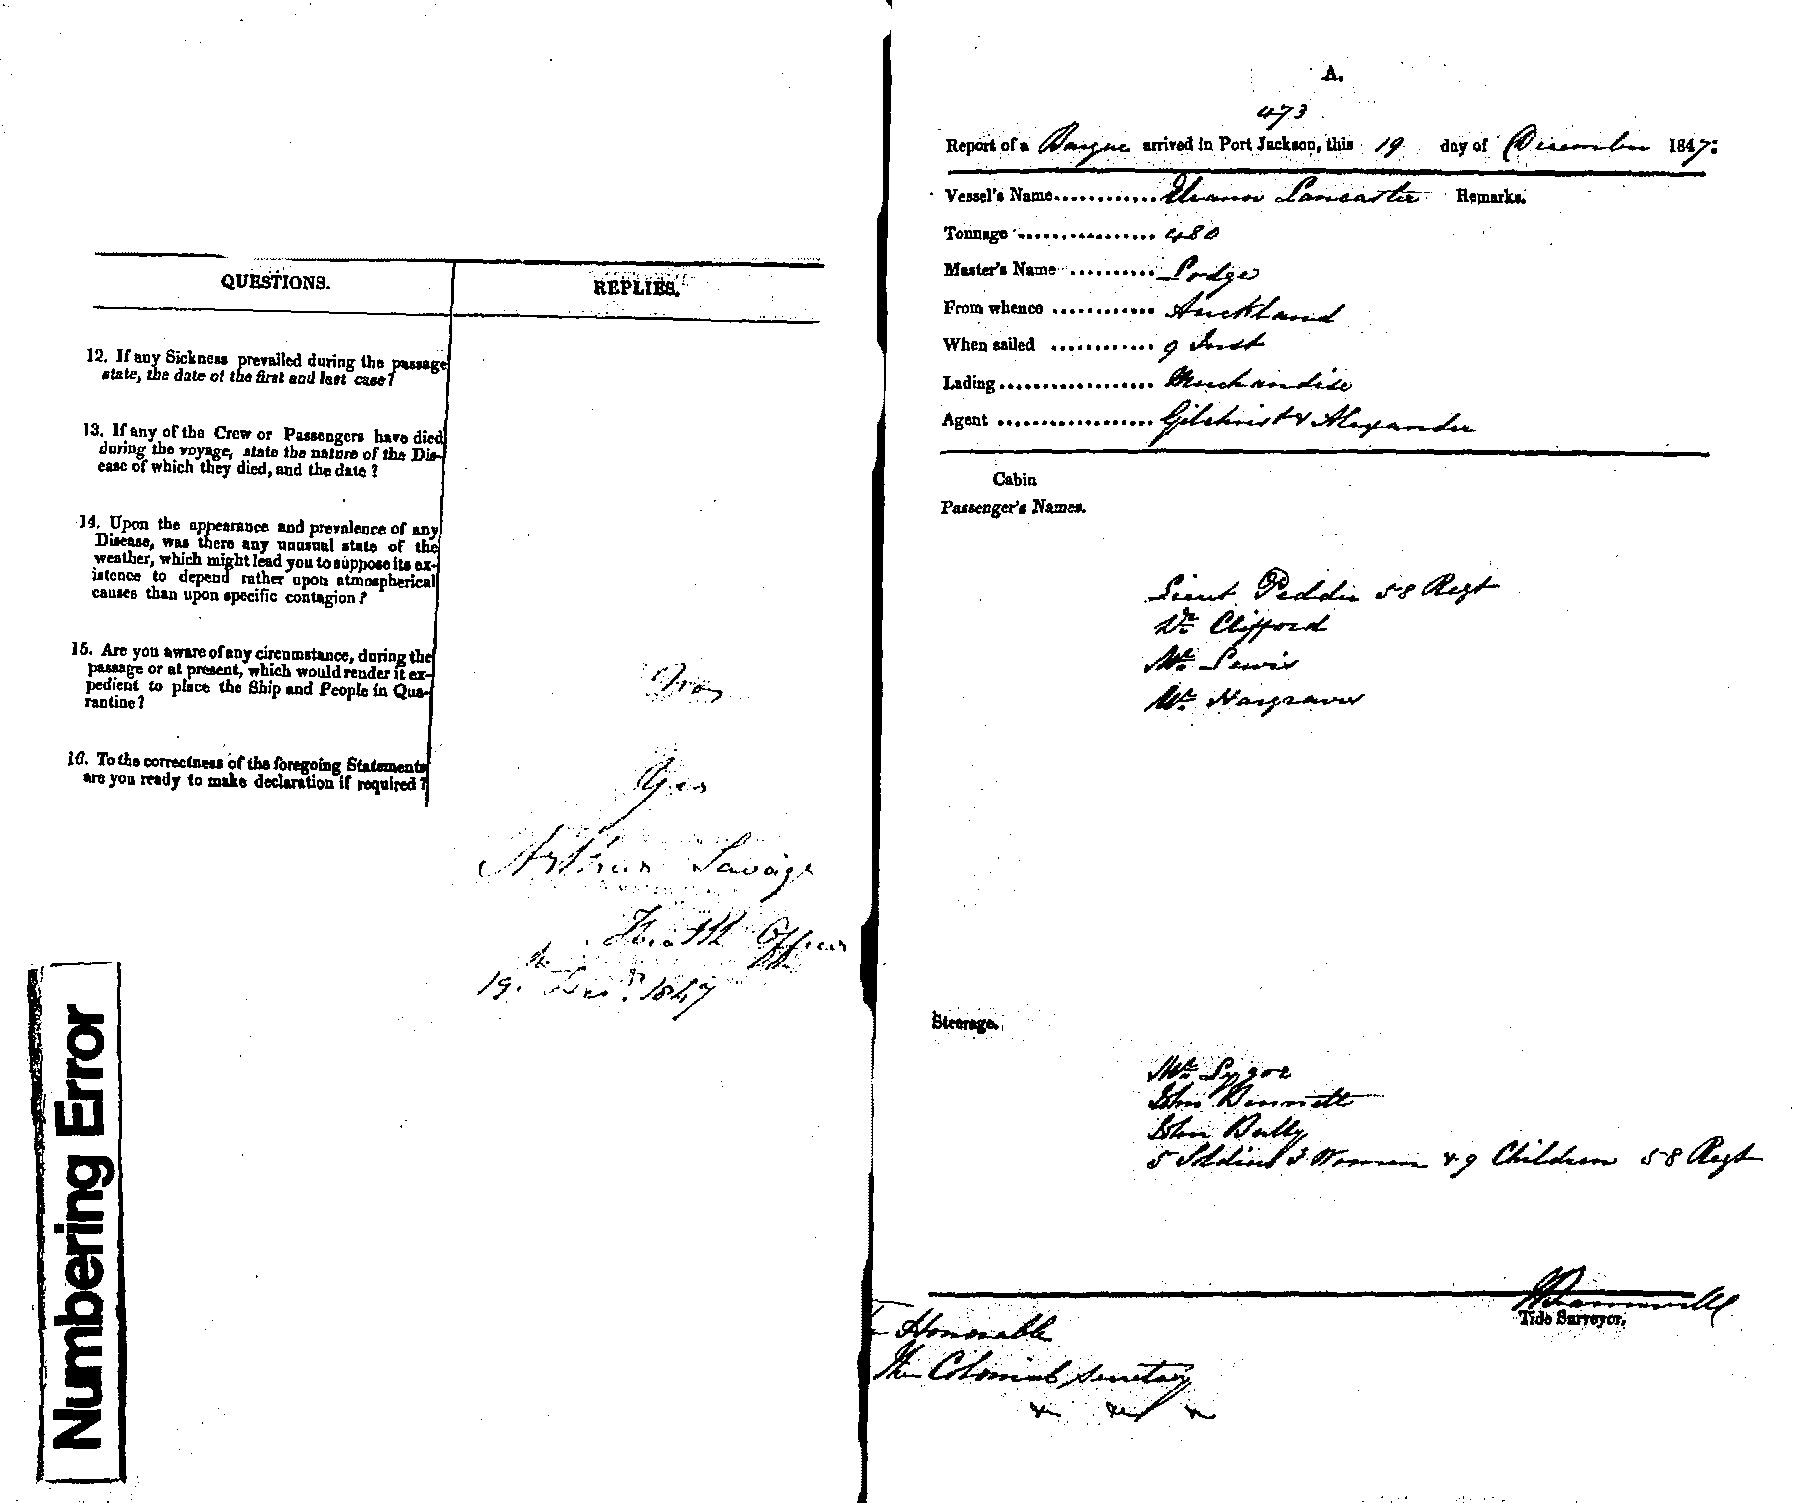 QUESTIONS.
REPLIES.
12. If any Sickness prevailed during the passage
state, the date of the first and last case?
13. If any of the Crew or Passengers have died
during the voyage, state the nature of the Dis-
ease of which they died, and the date?
14. Upon the appearance and prevalence of any
Disease, was there any unusual state of the
weather, which might lead you to suppose its ex-
istence to depend rather upon atmospherical
causes than upon specific contagion?
15. Are you aware of any circumstance, during the
passage or at present, which would render it ex-
pedient to place the Ship and People in Qua-
rantine?
16. To the correctness of the foregoing Statements
are you ready to make declaration if required?
Yes
Arthur Savage
Health Officer
19. Decr. 1847
Numbering Error
A.
473
Report of a Barque arrived in Port Jackson, this 19 day of December 1847:
Vessel's Name............ Eleanor Lancaster Remarks.
Tonnage ................ 480
Master's Name .......... Lodge
From whence ............ Auckland
When sailed ............ 9 Inst
Lading.................. Merchandise
Agent .................. Gilchrist & Alexander
Cabin
Passenger's Names.
Lieut Peddie 58 Regt
Dr. Clifford
Mr. Lewis
Mr. Hargraves
Steerage.
John Bennett
John Bully
5 Soldiers 3 Women & 9 Children 58 Regt
Tide Surveyor.
Honorable
The Colonial Secretary